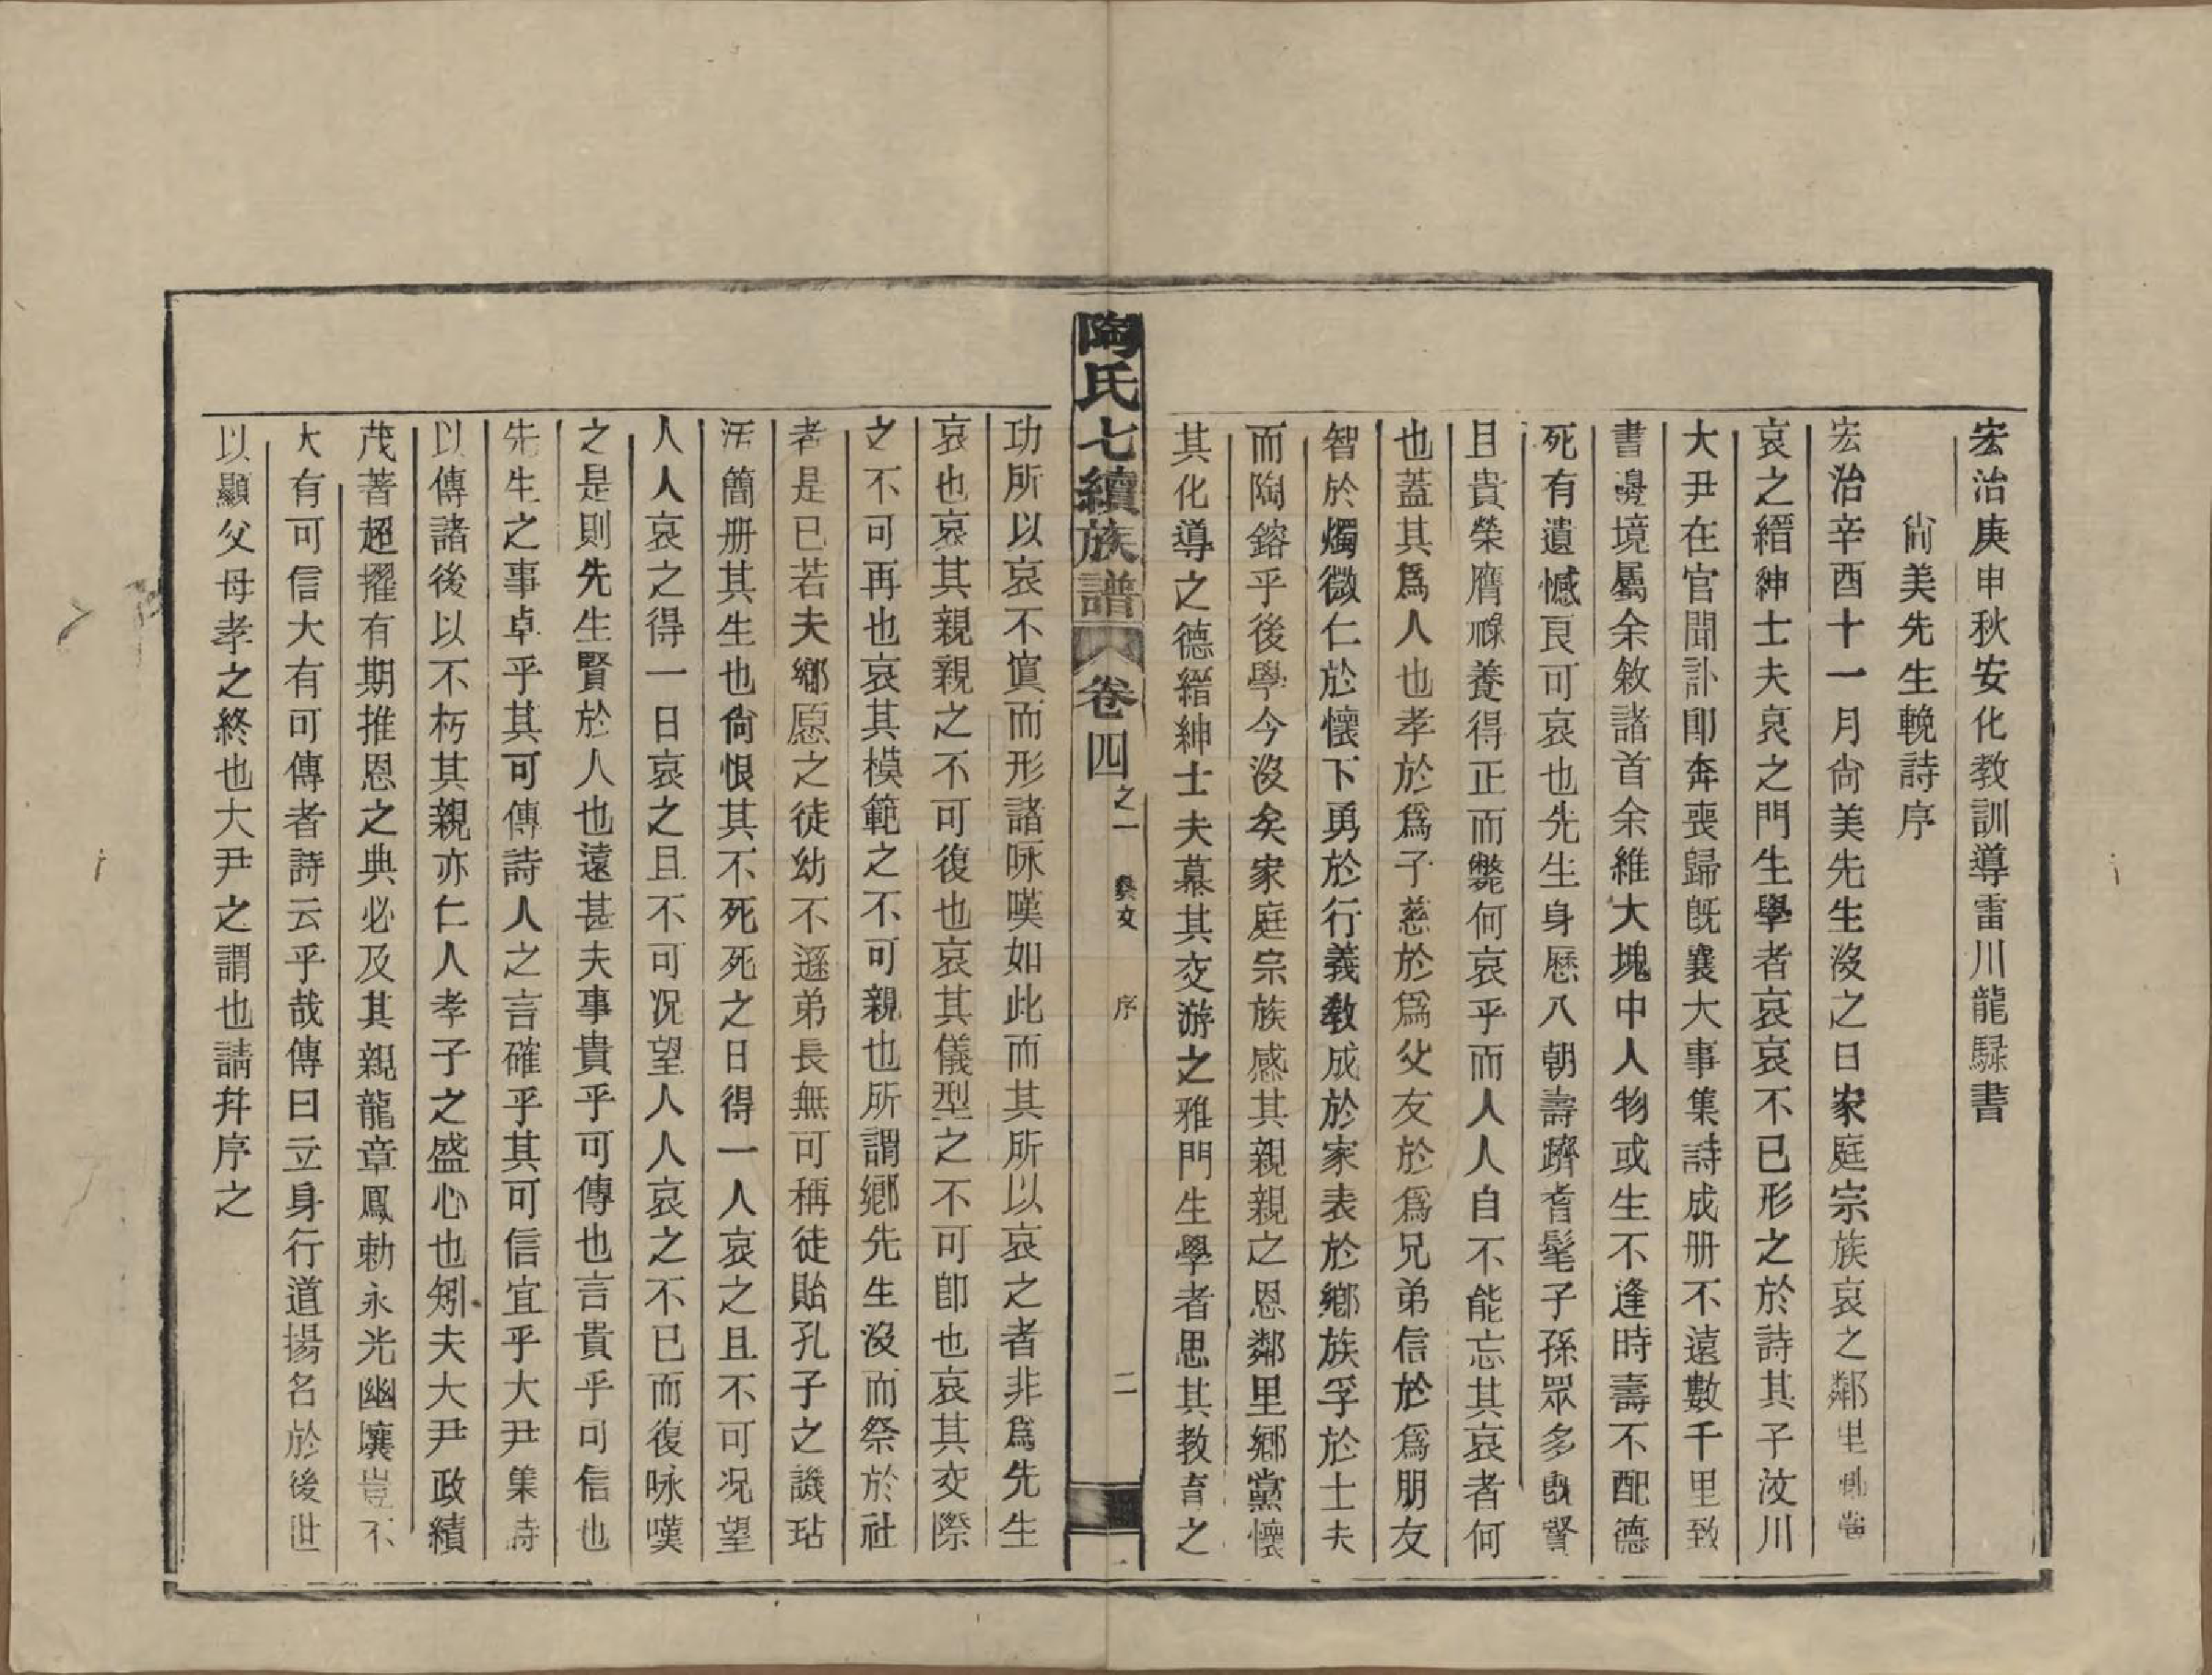 宏治庚申秋安化教訓導雷川龍騄書
尙美先生輓詩序
宏治辛酉十一月尙美先生沒之日家庭宗族哀之鄰里鄉黨
哀之縉紳士夫哀之門生學者哀哀不已形之於詩其子汶川
大尹在官聞訃卽奔喪歸旣襄大事集詩成册不遠數千里致
書邊境屬余敘諸首余維大塊中人物或生不逢時壽不配德
死有遺憾良可哀也先生身歷八朝壽躋耆髦子孫眾多旣賢
且貴榮膺祿養得正而斃何哀乎而人人自不能忘其哀者何
也蓋其爲人也孝於爲子慈於爲父友於爲兄弟信於爲朋友
智於燭微仁於懷下勇於行義敎成於家表於鄉族孚於士夫
而陶鎔乎後學今沒矣家庭宗族感其親親之恩鄰里鄉黨懷
其化導之德縉紳士夫慕其交游之雅門生學者思其教育之
陶氏七續族譜 卷四 之一 藝文 序 二
功所以哀不寘而形諸咏嘆如此而其所以哀之者非爲先生
哀也哀其親親之不可復也哀其儀型之不可卽也哀其交際
之不可再也哀其模範之不可親也所謂鄉先生沒而祭於社
者是已若夫鄉愿之徒幼不遜弟長無可稱徒貽孔子之譏玷
汚簡册其生也尙恨其不死死之日得一人哀之且不可况望
人人哀之得一日哀之且不可况望人人哀之不已而復咏嘆
之是則先生賢於人也遠甚夫事貴乎可傳也言貴乎可信也
先生之事卓乎其可傳詩人之言確乎其可信宜乎大尹集詩
以傳諸後以不朽其親亦仁人孝子之盛心也矧夫大尹政績
茂著超擢有期推恩之典必及其親龍章鳳勅永光幽壤豈不
大有可信大有可傳者詩云乎哉傳曰立身行道揚名於後世
以顯父母孝之終也大尹之謂也請幷序之